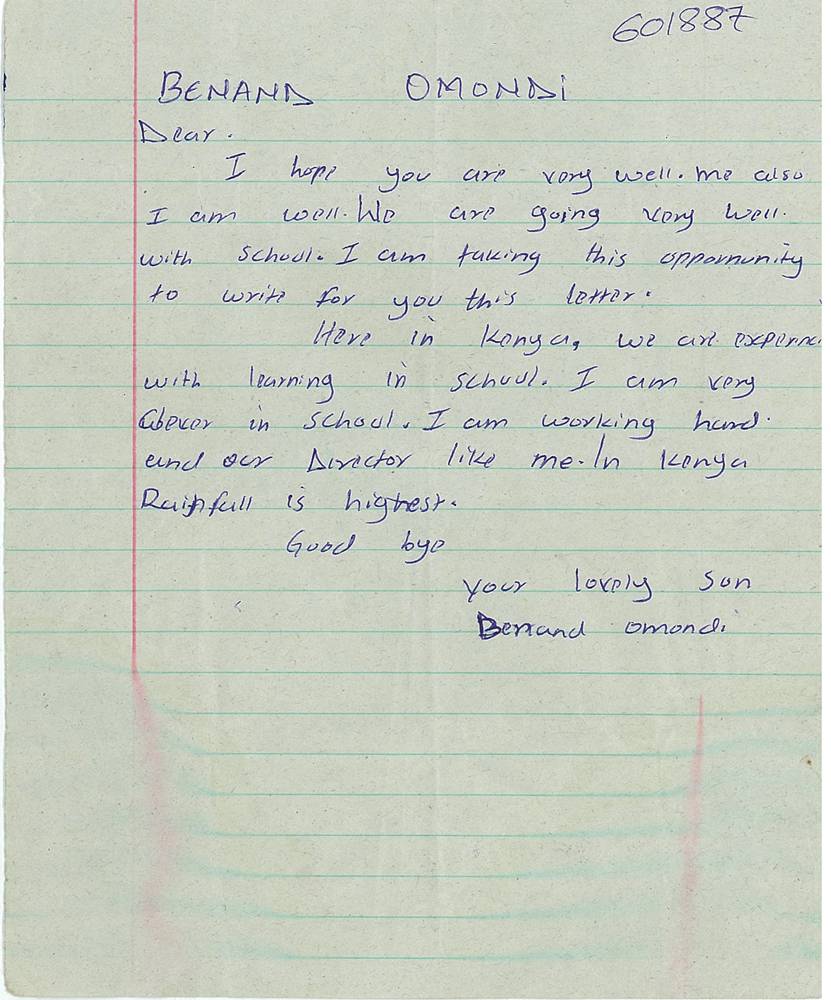 601887
BENAND OMONDI
Dear.
I hope you are very well. me also
I am well. We are going very well.
with school. I am taking this oppornunity
to write for you this letter.
Here in Kenya, we are
with learning in school. I am very
clever in school. I am working hard.
and our Director like me. In Kenya
Rainfall is highest.
Good bye
your lovely son
Bernand omondi